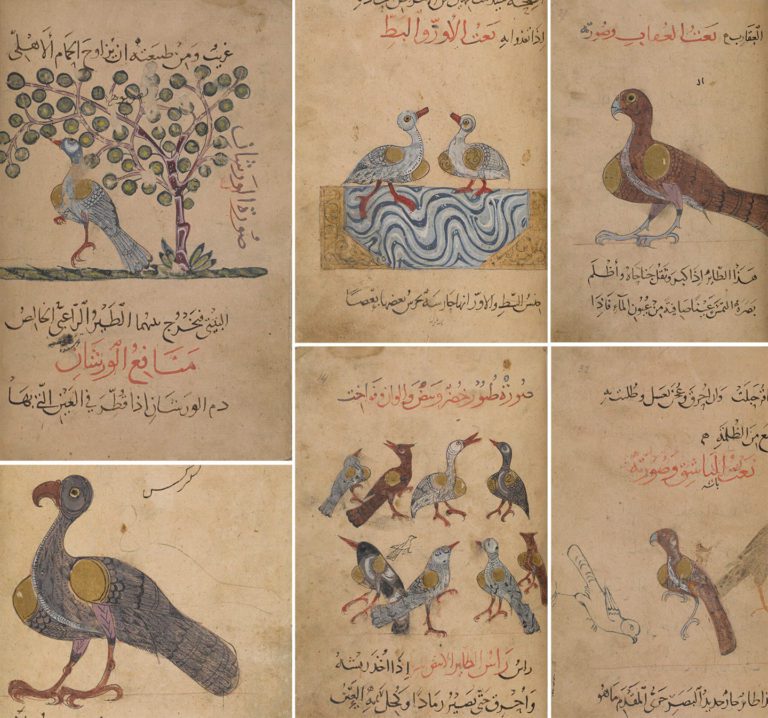 غريب ومن طبيعته ان يزاوج الحمام الاهلى
صورة الورشان
البيتى فيخرج بينهما الطير الراعبى الخالص
منافع الورشان
دم الورشان اذا قطر فى العين التى بها
نعت الاوز والبط
جنس البط والاوز انها حارسة تحرس بعضها بعضا
العقارب نعت العقاب وصورته
هذا الطائر اذا كبر وثقل جناحاه واظلم
بصره التمس عينا صافية من عيون الماء فاذا
صورة طيور خضر وبيض والوان وفواخت
راس الطائر اذا اخذ ريشه
واحرق حتى يصير رمادا وكحل به العين
وان احرق وعجن بعسل وطليت به
من الظلمة
نعت الباشق وصورته
حار حديد البصر جرى المقدم ماهو